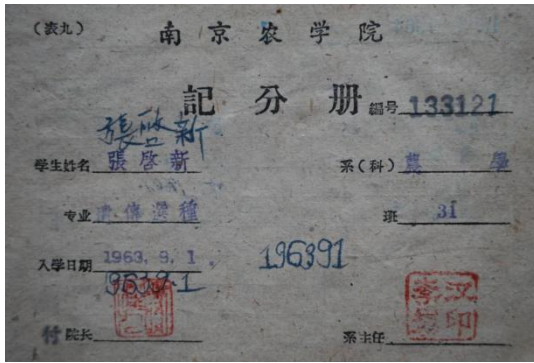 （表九） 南京农学院
記分册 編号 133121
張啓新
学生姓名 張啓新 系（科） 農學
专业 遺傳選種 班 31
入学日期 1963.9.1. 196391
9639.1
付院长 系主任